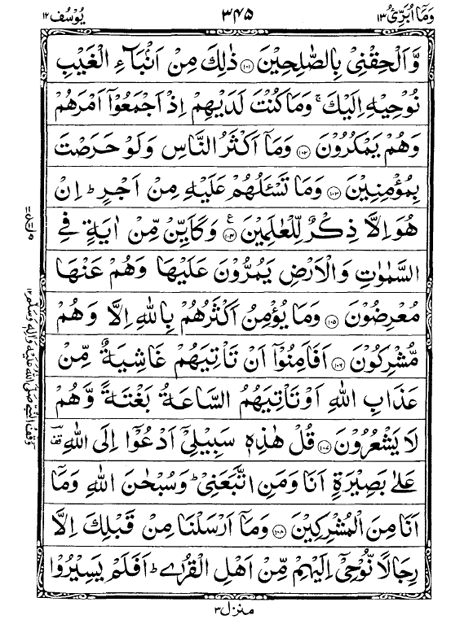 وَمَاۤ اُبَرِّئُ ۱۳ ۳۴۵ یُوْسُف ۱۲
وَّاَلْحِقْنِیْ بِالصّٰلِحِیْنَ ﴿۱۰۱﴾ ذٰلِكَ مِنْ اَنْۢبَآءِ الْغَیْبِ
نُوْحِیْهِ اِلَیْكَ ۚ وَمَا كُنْتَ لَدَیْهِمْ اِذْ اَجْمَعُوْۤا اَمْرَهُمْ
وَهُمْ یَمْكُرُوْنَ ﴿۱۰۲﴾ وَمَاۤ اَكْثَرُ النَّاسِ وَلَوْ حَرَصْتَ
بِمُؤْمِنِیْنَ ﴿۱۰۳﴾ وَمَا تَسْـَٔلُهُمْ عَلَیْهِ مِنْ اَجْرٍ ؕ اِنْ
هُوَ اِلَّا ذِكْرٌ لِّلْعٰلَمِیْنَ ﴿۱۰۴﴾ وَكَاَیِّنْ مِّنْ اٰیَةٍ فِی
السَّمٰوٰتِ وَالْاَرْضِ یَمُرُّوْنَ عَلَیْهَا وَهُمْ عَنْهَا
مُعْرِضُوْنَ ﴿۱۰۵﴾ وَمَا یُؤْمِنُ اَكْثَرُهُمْ بِاللّٰهِ اِلَّا وَهُمْ
مُّشْرِكُوْنَ ﴿۱۰۶﴾ اَفَاَمِنُوْۤا اَنْ تَاْتِیَهُمْ غَاشِیَةٌ مِّنْ
عَذَابِ اللّٰهِ اَوْ تَاْتِیَهُمُ السَّاعَةُ بَغْتَةً وَّهُمْ
لَا یَشْعُرُوْنَ ﴿۱۰۷﴾ قُلْ هٰذِهٖ سَبِیْلِیْۤ اَدْعُوْۤا اِلَی اللّٰهِ
عَلٰی بَصِیْرَةٍ اَنَا وَمَنِ اتَّبَعَنِیْ ؕ وَسُبْحٰنَ اللّٰهِ وَمَاۤ
اَنَا مِنَ الْمُشْرِكِیْنَ ﴿۱۰۸﴾ وَمَاۤ اَرْسَلْنَا مِنْ قَبْلِكَ اِلَّا
رِجَالًا نُّوْحِیْۤ اِلَیْهِمْ مِّنْ اَهْلِ الْقُرٰی ؕ اَفَلَمْ یَسِیْرُوْا
منزل ۳